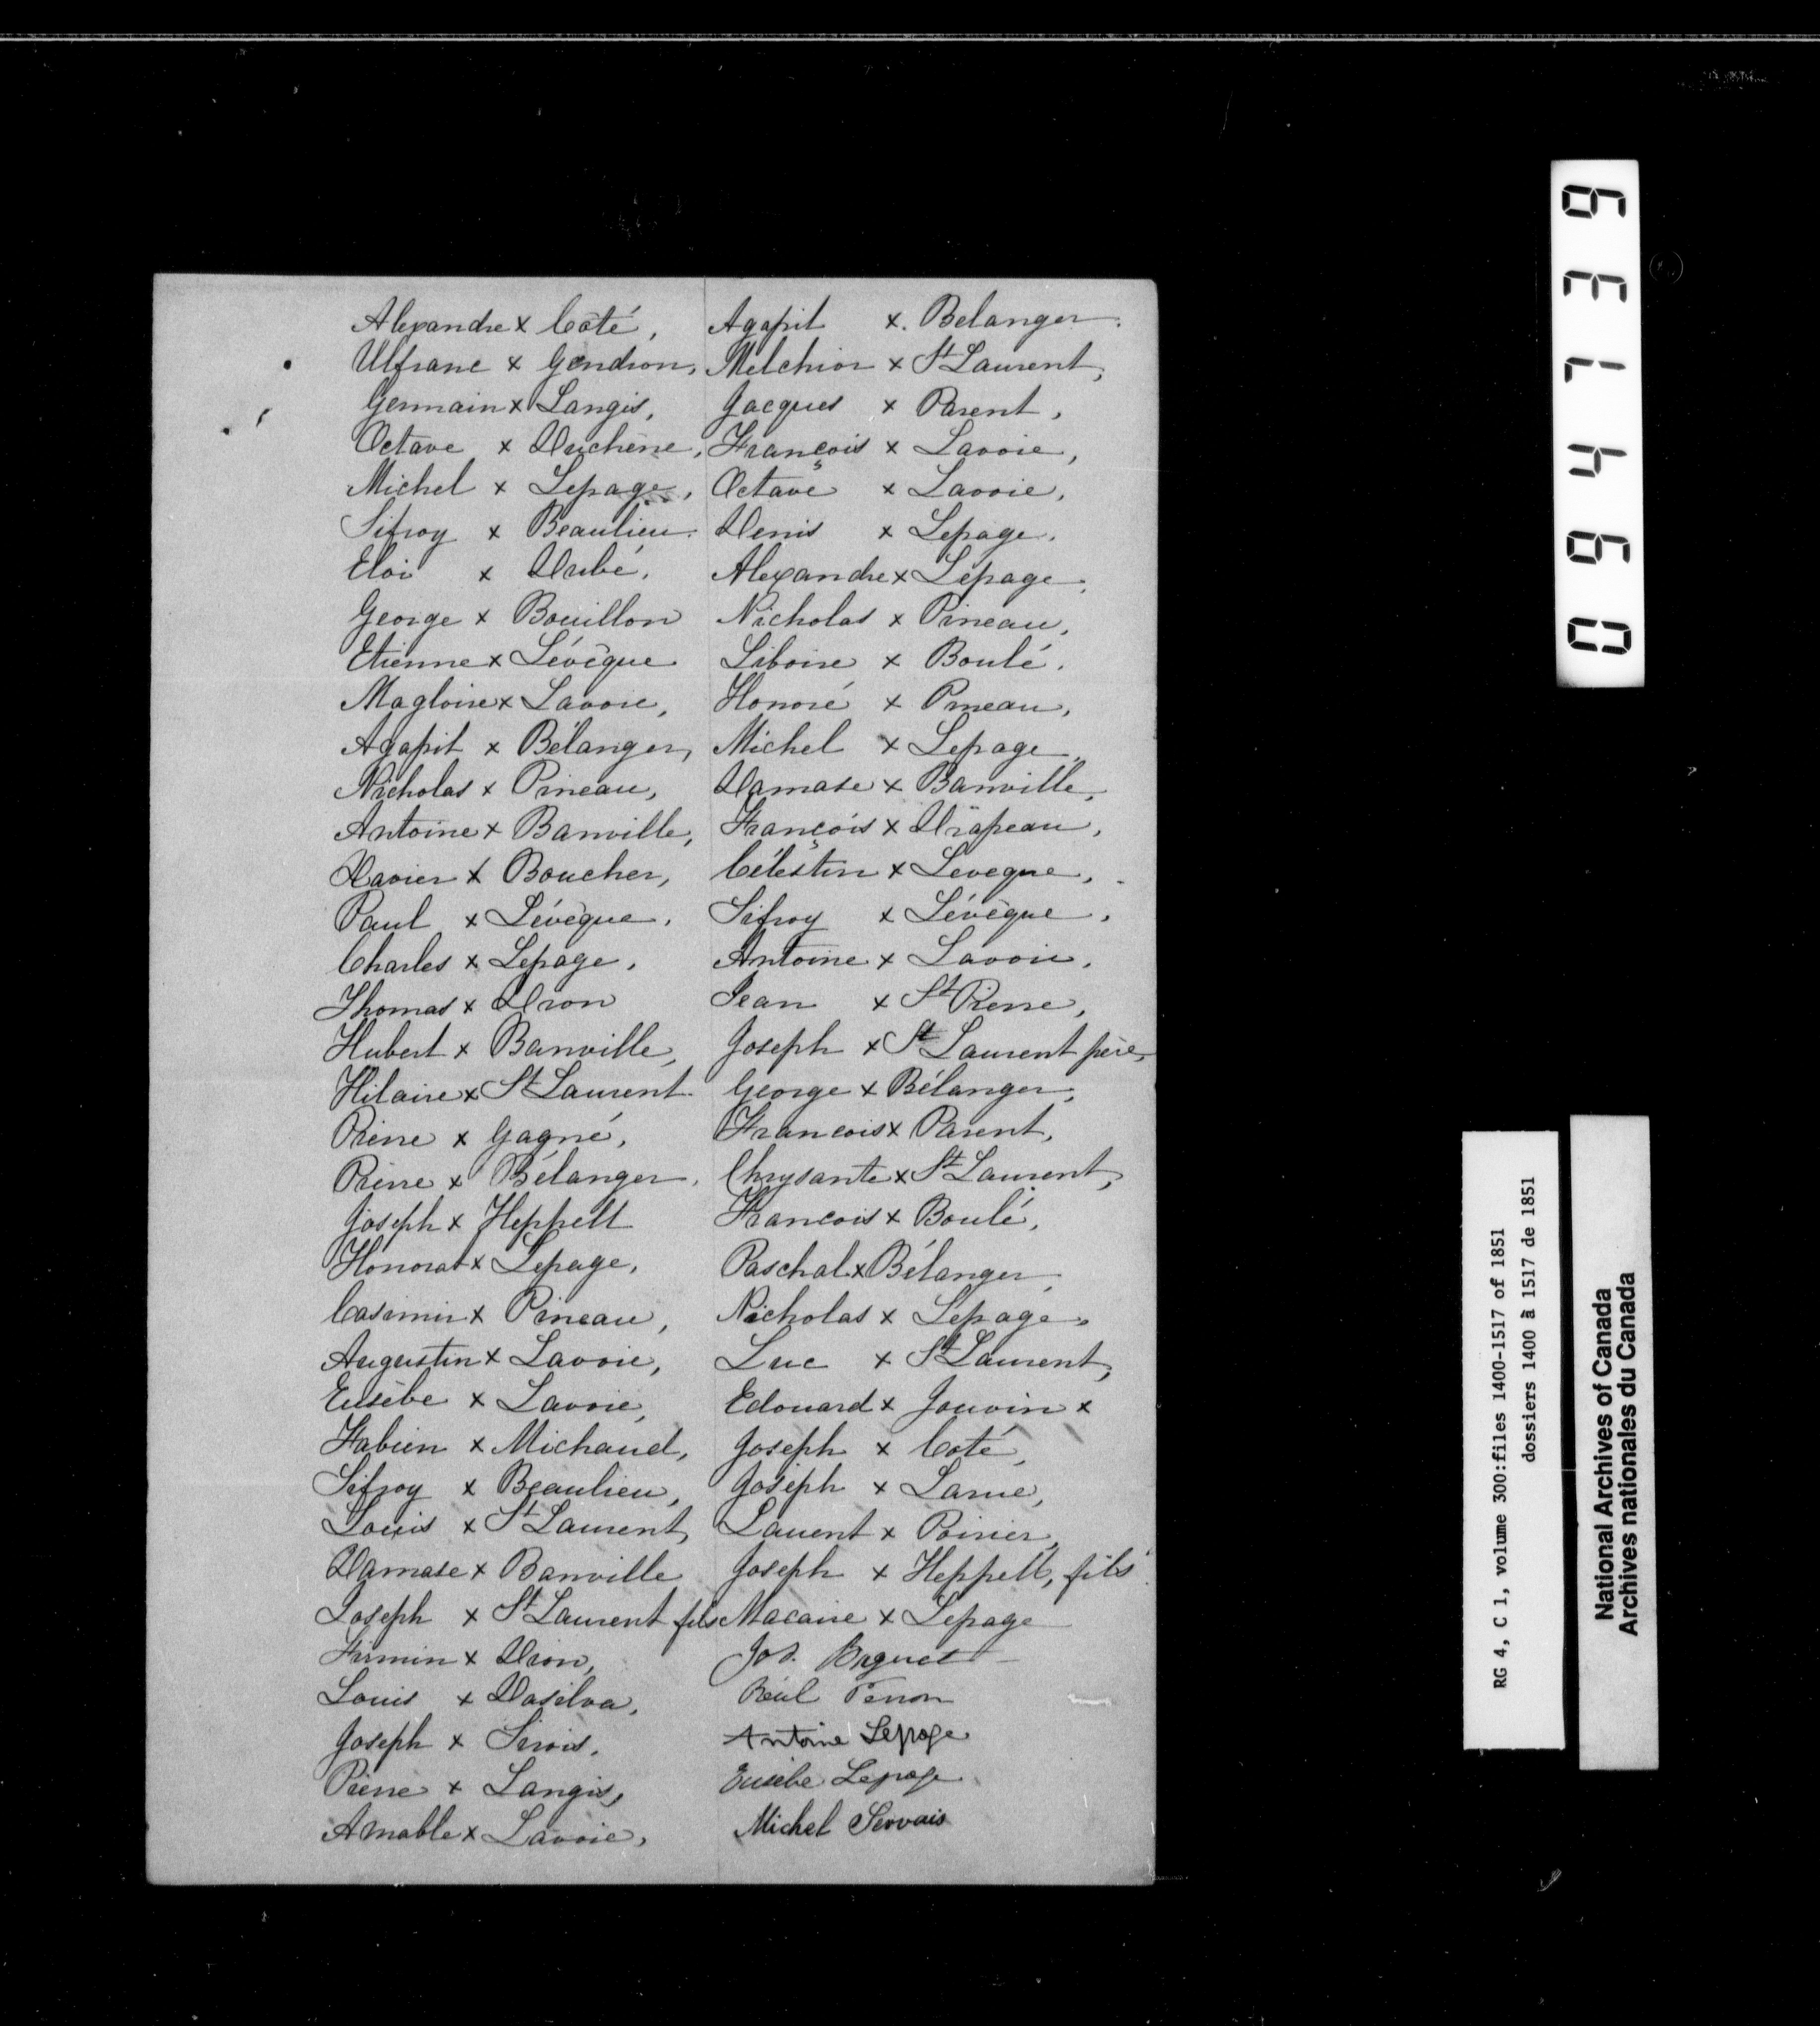 Alexandre x Coté,
Ulfranc x Gendron,
Germain x Langis,
Octave x Duchène,
Michel x Lepage,
Sifroy x Beaulieu.
Eloi x Dubé,
George x Bouillon
Etienne x Lévêque
Magloire x Lavoie,
Agapit x Bélanger,
Nicholas x Pineau,
Antoine x Banville,
Xavier x Boucher,
Paul x Lévèque,
Charles x Lepage,
Thomas x Dion
Hubert x Banville,
Hilaire x St Laurent
Pierre x Gagné,
Pierre x Bélanger,
Joseph x Heppell
Honorat x Lepage,
Casimir x Pineau,
Augustin x Lavoie,
Eusèbe x Lavoie,
Fabien x Michaud,
Sifroy x Beaulieu,
Louis x St Laurent,
Damase x Banville
Joseph x St Laurent fils
Firmin x Dion,
Louis x Dasilva,
Joseph x Sirois,
Pierre x Langis,
Amable x Lavoie,
Agapit x. Belanger.
Melchior x St Laurent,
Jacques x Parent,
François x Lavoie,
Octave x Lavoie,
Denis x Lepage,
Alexandre x Lepage,
Nicholas x Pineau,
Liboire x Boulé,
Honoré x Pineau,
Michel x Lepage,
Damase x Banville,
François x Drapeau,
Célestin x Leveque,
Sifroy x Lévèque,
Antoine x Lavoie,
Jean x St Pierre,
Joseph x St Laurent père,
George x Bélanger,
Francois x Parent,
Chrysante x St Laurent,
Francois x Boulé,
Paschal x Bélanger,
Nicholas x Lepage,
Luc x St Laurent,
Edouard x Jouvin x
Joseph x Coté,
Joseph x Larue,
Laurent x Poirier,
Joseph x Heppell, fils
Macaire x Lepage
Jos.
Antoine Lepage
Eusèbe Lepage
Michel Servais
094739
RG 4, C 1, volume 300:files 1400-1517 of 1851
dossiers 1400 à 1517 de 1851
National Archives of Canada
Archives nationales du Canada